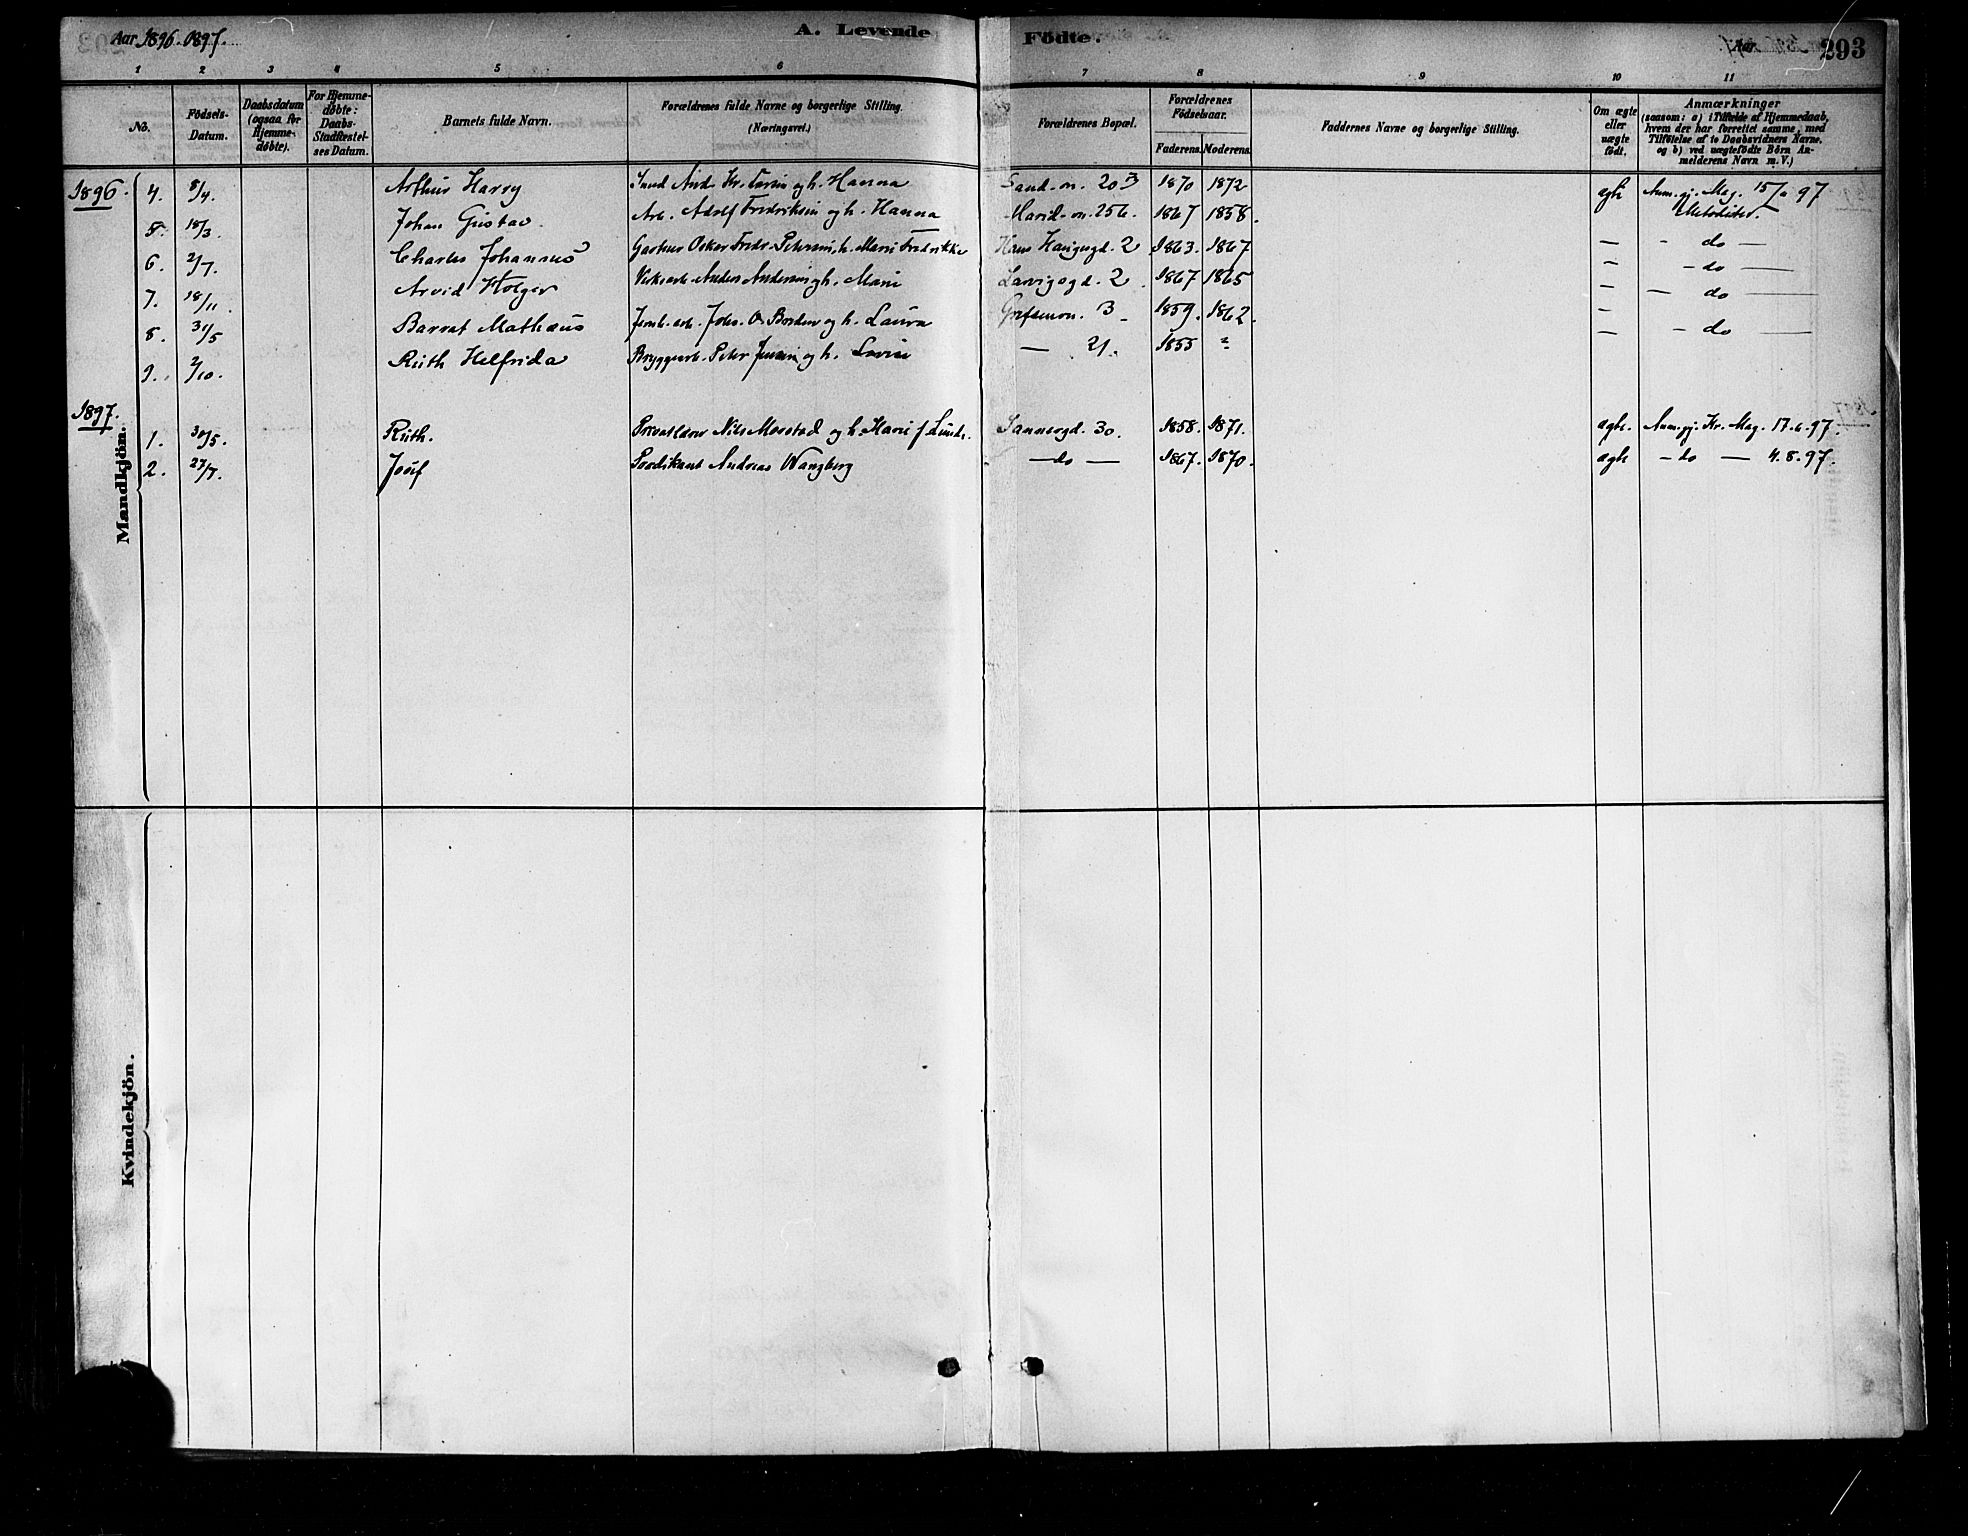 Aar 1896. 1897.
A. Levende Födte.
Aar 293
1 2 3 4 5 6 7 8 9 10 11
No.
Födsels-Datum.
Daabsdatum (ogsaa for Hjemme-døbte).
For Hjemme-døbte: Daabs-Stadfæstel-ses Datum.
Barnets fulde Navn.
Forældrenes fulde Navne og borgerlige Stilling. (Næringsvei.)
Forældrenes Bopæl.
Forældrenes Födselsaar.
Faderens. Moderens.
Faddernes Navne og borgerlige Stilling.
Om ægte eller uægte født.
Anmærkninger (saasom: a) i Tilfælde af Hjemmedaab, hvem der har forrettet samme, med Tilføielse af to Daabsvidners Navne, og b) ved uægtefödte Börn Anmelderens Navn m.V.)
1896. 4. 8/4. Arthur Harry And. Kr. og h. Hanna Sand. 1870 1872 ægte Anm. gj. Mag. 97
Metodister.
5. 18/3. Johan Gustav. Arb. Adolf Fredriksen og h. Hanna Marid. 256. 1867 1858. — - do —
6. 2/7. Charles Johannes Oskar Fredr. Petersen, h. Marie Fredrikke Hans Haugesgd. 2 1863. 1867 — - do —
7. 18/11. Arvid Holger Anders Andersen og h. Marie Larvigsgd. 2 1867 1865 — — do —
8. 31/5 Barrat Mathæus Jernb. arb. Johs. O. og h. Laura 3 1859. 1862. — - do —
9. 2/10. Ruth Helfrida Bryggearb. Peter Jensen og h. Lovise — 21. 1855 —
1897.
1. 30/5. Ruth. Privatlærer Nils Morstad og h. Marie f. Lunde. Sannergd. 30. 1858. 1871. ægte. Anm. gj. Kr. Mag. 17-6-97.
2. 27/7. Josef Prædikant Andreas Wangberg — do — 1867. 1870. ægte - do — 4.8.97.
Mandkjön.
Kvindekjön.